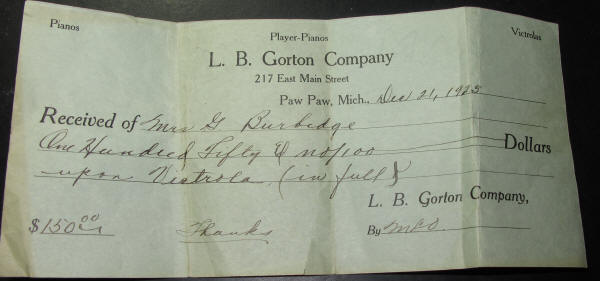 Pianos Player-Pianos Victrolas
L. B. Gorton Company
217 East Main Street
Paw Paw, Mich., Dec 21, 1925
Received of Mrs G Burbidge
One Hundred Fifty & no/100 Dollars
upon Victrola (in full)
L. B. Gorton Company,
$150.00 Thanks By